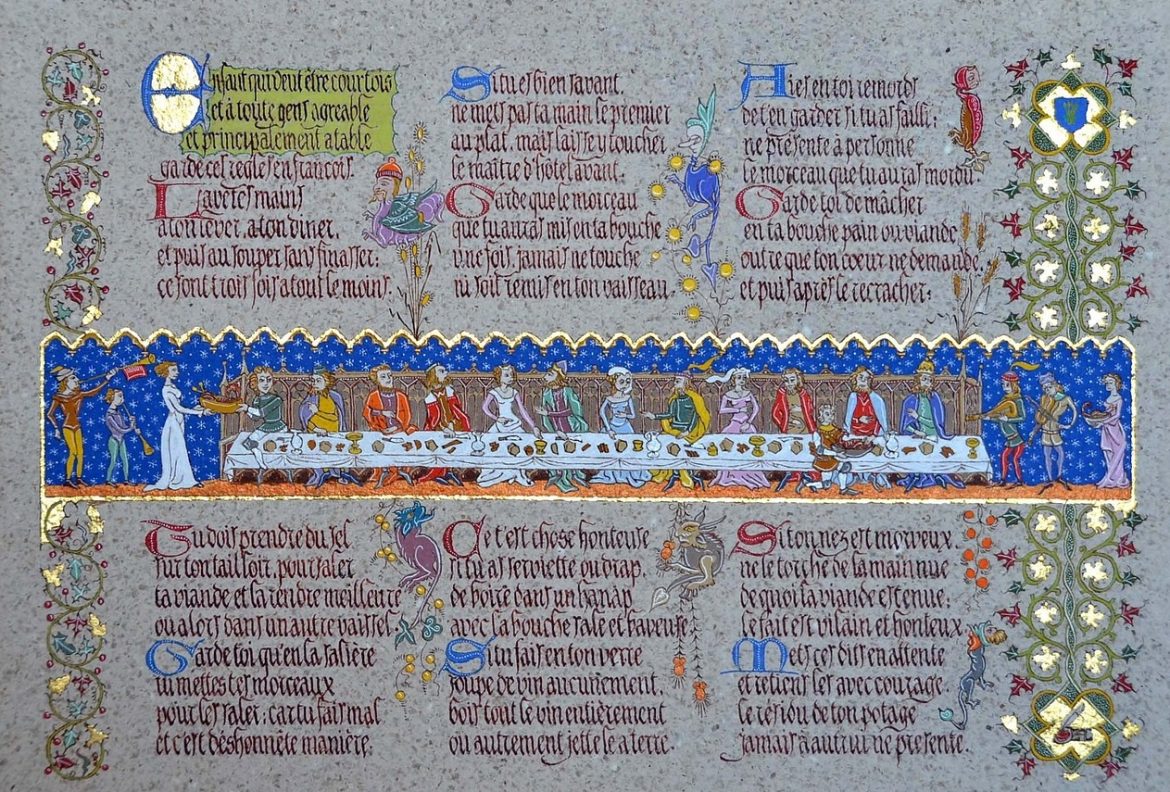 Enfant qui veut être courtois
et à toute gens agreable
et principalement a table
garde ces regles en francois.
Lave tes mains
a ton lever, a ton diner,
et puis au souper sans finasser.
ce sont trois fois a tout le moins.
Si tu es bien savant,
ne mets pas ta main le premier
au plat, mais laisse y toucher
le maître d'hôtel avant.
Garde que le morceau
que tu auras mis en ta bouche
une fois, jamais ne touche
ni soit remis en ton vaisseau.
Aies en toi remords
de t'en garder si tu as failli;
ne présente à personne
le morceau que tu auras mordu.
Garde toi de mâcher
en ta bouche pain ou viande
outre que ton coeur ne demande,
et puis après le recracher;
Tu dois prendre du sel
sur ton tailloir, pour saler
ta viande et la rendre meilleure
ou alors dans un autre vaissel.
Garde toi qu'en la salière
tu mettes tes morceaux
pour les saler; car tu fais mal
et c'est deshonnête manière.
Ce t'est chose honteuse
si tu as serviette ou drap,
de boire dans un hanap
avec la bouche sale et baveuse
Si tu fais en ton verre
soupe de vin aucunement,
bois tout le vin entièrement
ou autrement jette le a terre.
Si ton nez est morveux
ne le torche de la main nue
de quoi la viande est tenue;
le fait est vilain et honteux.
Mets ces dits en attente
et retiens les avec courage.
le résidu de ton potage
jamais à autrui ne présente.